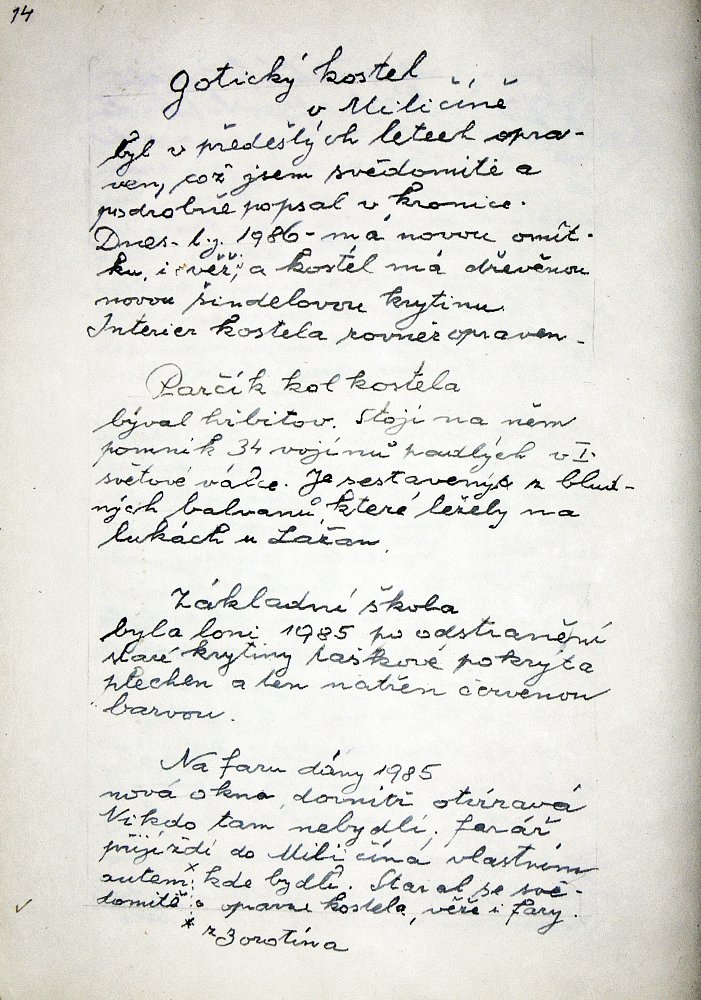 14
Gotický kostel
v Miličíně
byl v předešlých letech opra-
ven, což jsem svědomitě a
podrobně popsal v kronice.
Dnes - l.g. 1986 - má novou omít-
ku, i věž, a kostel má dřevěnou
novou šindelovou krytinu.
Interier kostela rovněž opraven.
Parčík kol kostela
býval hřbitov. Stojí na něm
pomník 34 vojínů padlých v I.
světové válce. Je sestavený z blud-
ných balvanů, které ležely na
lukách u Lažan.
Základní škola
byla loni 1985 po odstranění
staré krytiny taškové pokryta
plechem a ten natřen červenou
barvou.
Na faru dány 1985
nová okna, dovnitř otvíravá
Nikdo tam nebydlí. Farář
přijíždí do Miličína vlastním
autem x kde bydlí. Staral se svě-
domitě o opravu kostela, věže i fary.
x z Borotína